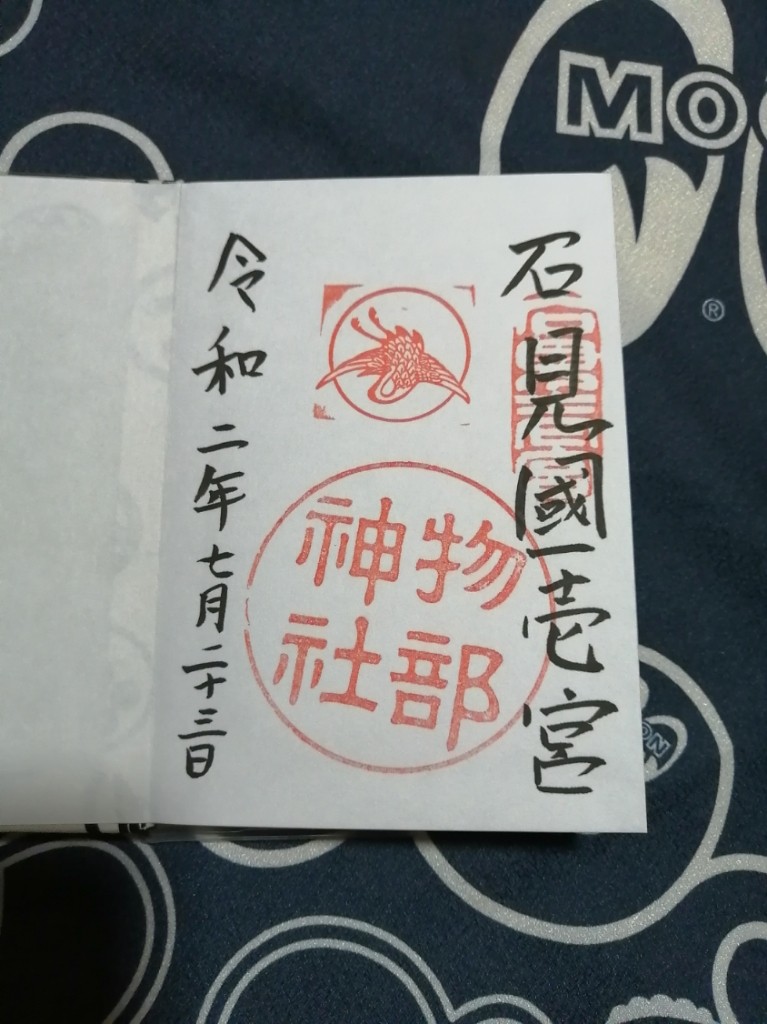 石見國壱宮
物部
神社
令和二年七月二十三日
MO
®